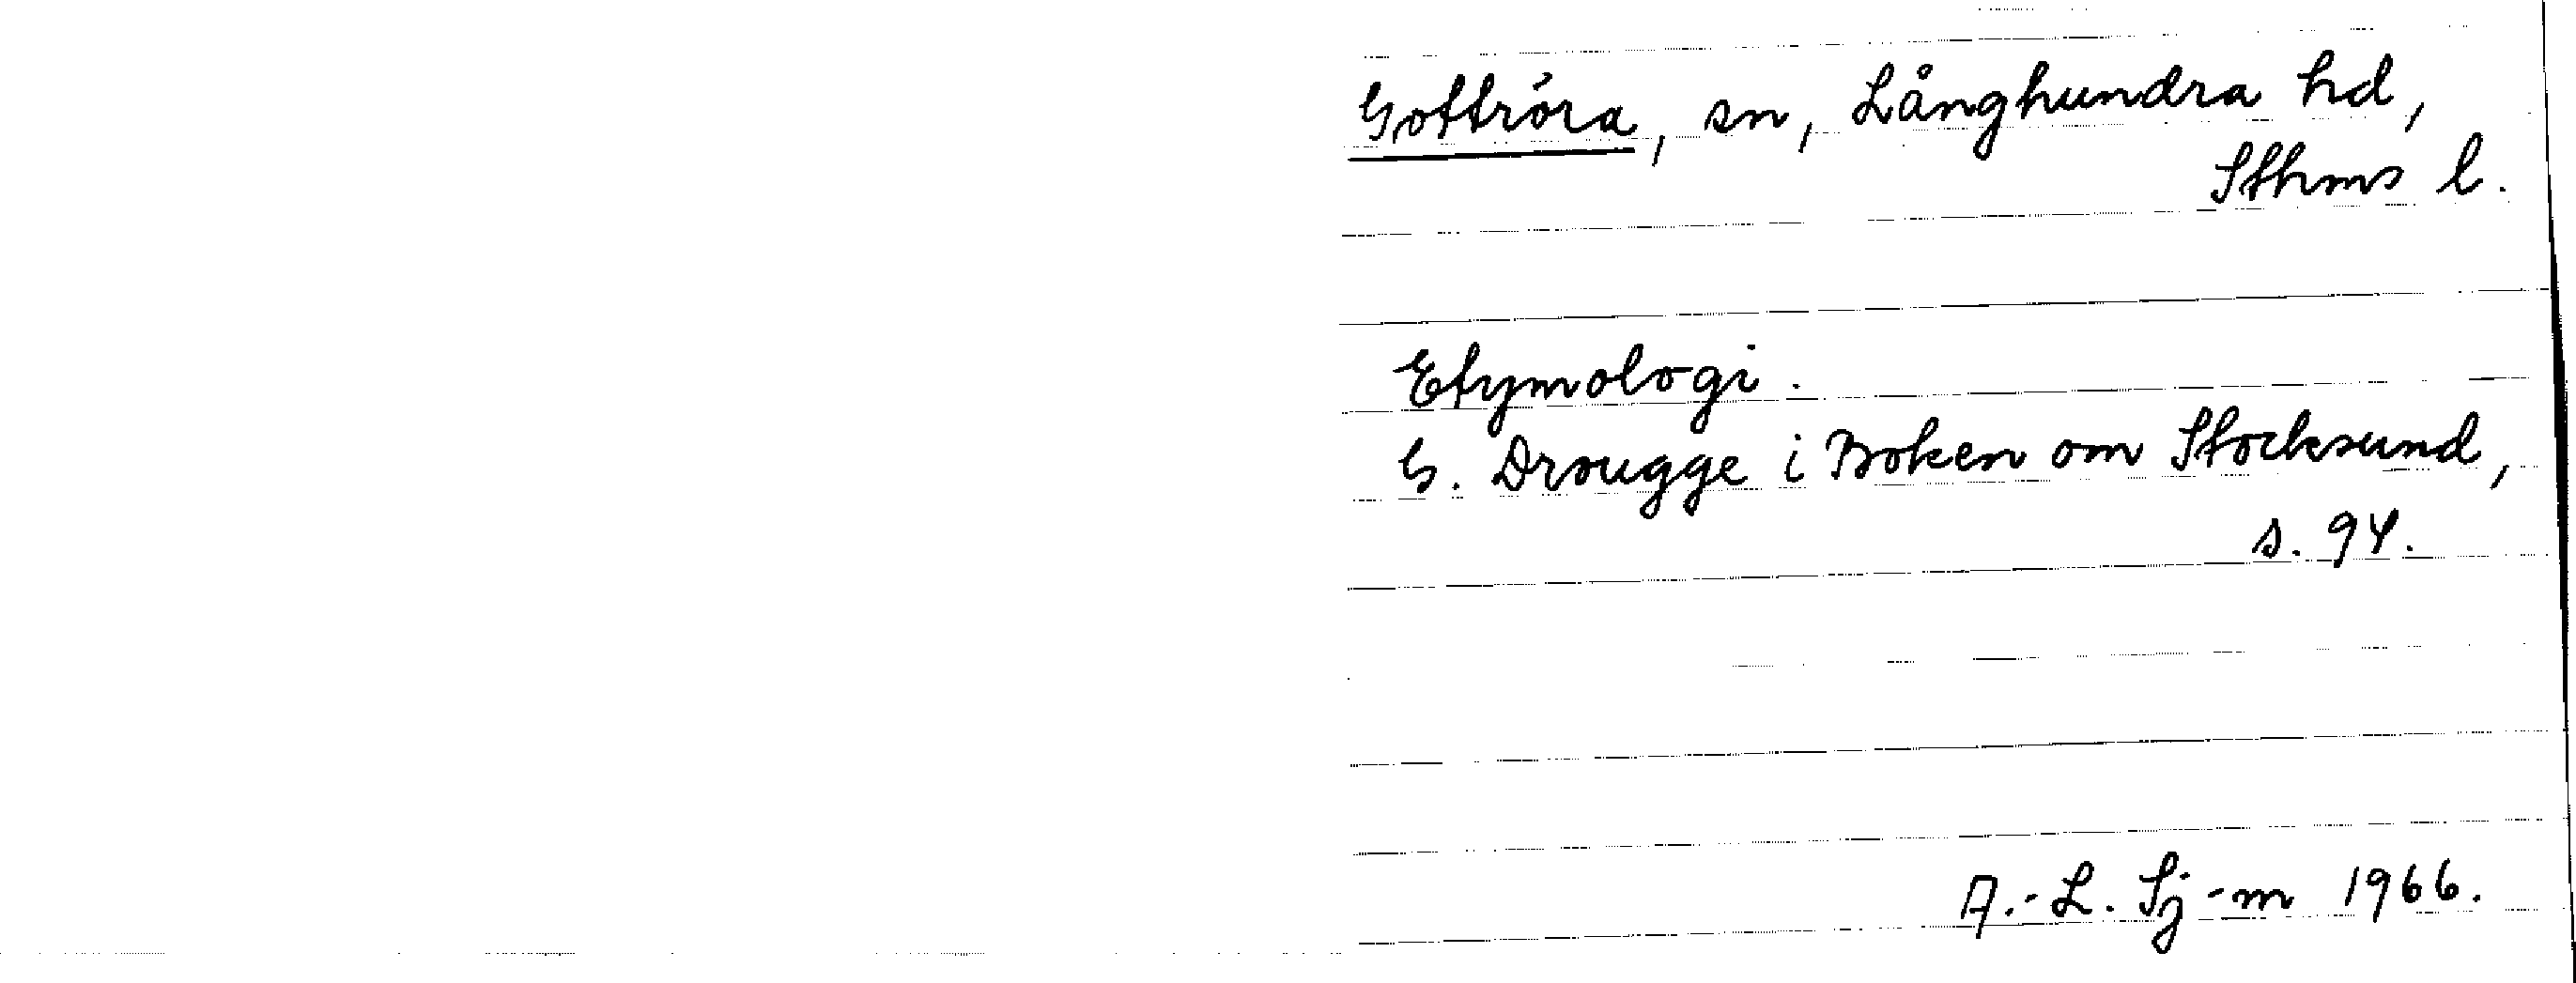 Gottröra, sn, Långhundra hd,
Sthms l.
Etymologi.
G. Drougge i Boken om Stocksund,
s. 94.
A.-L. Sj-m 1966.